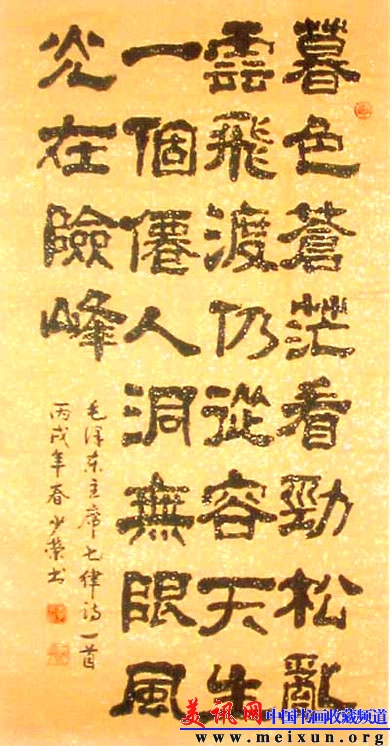 暮色蒼茫看勁松亂
雲飛渡仍從容天生
一個僊人洞無限風
光在險峰
毛泽东主席七律诗一首
丙戌年春少荣书
美讯网
中国书画收藏频道
www.meixun.org